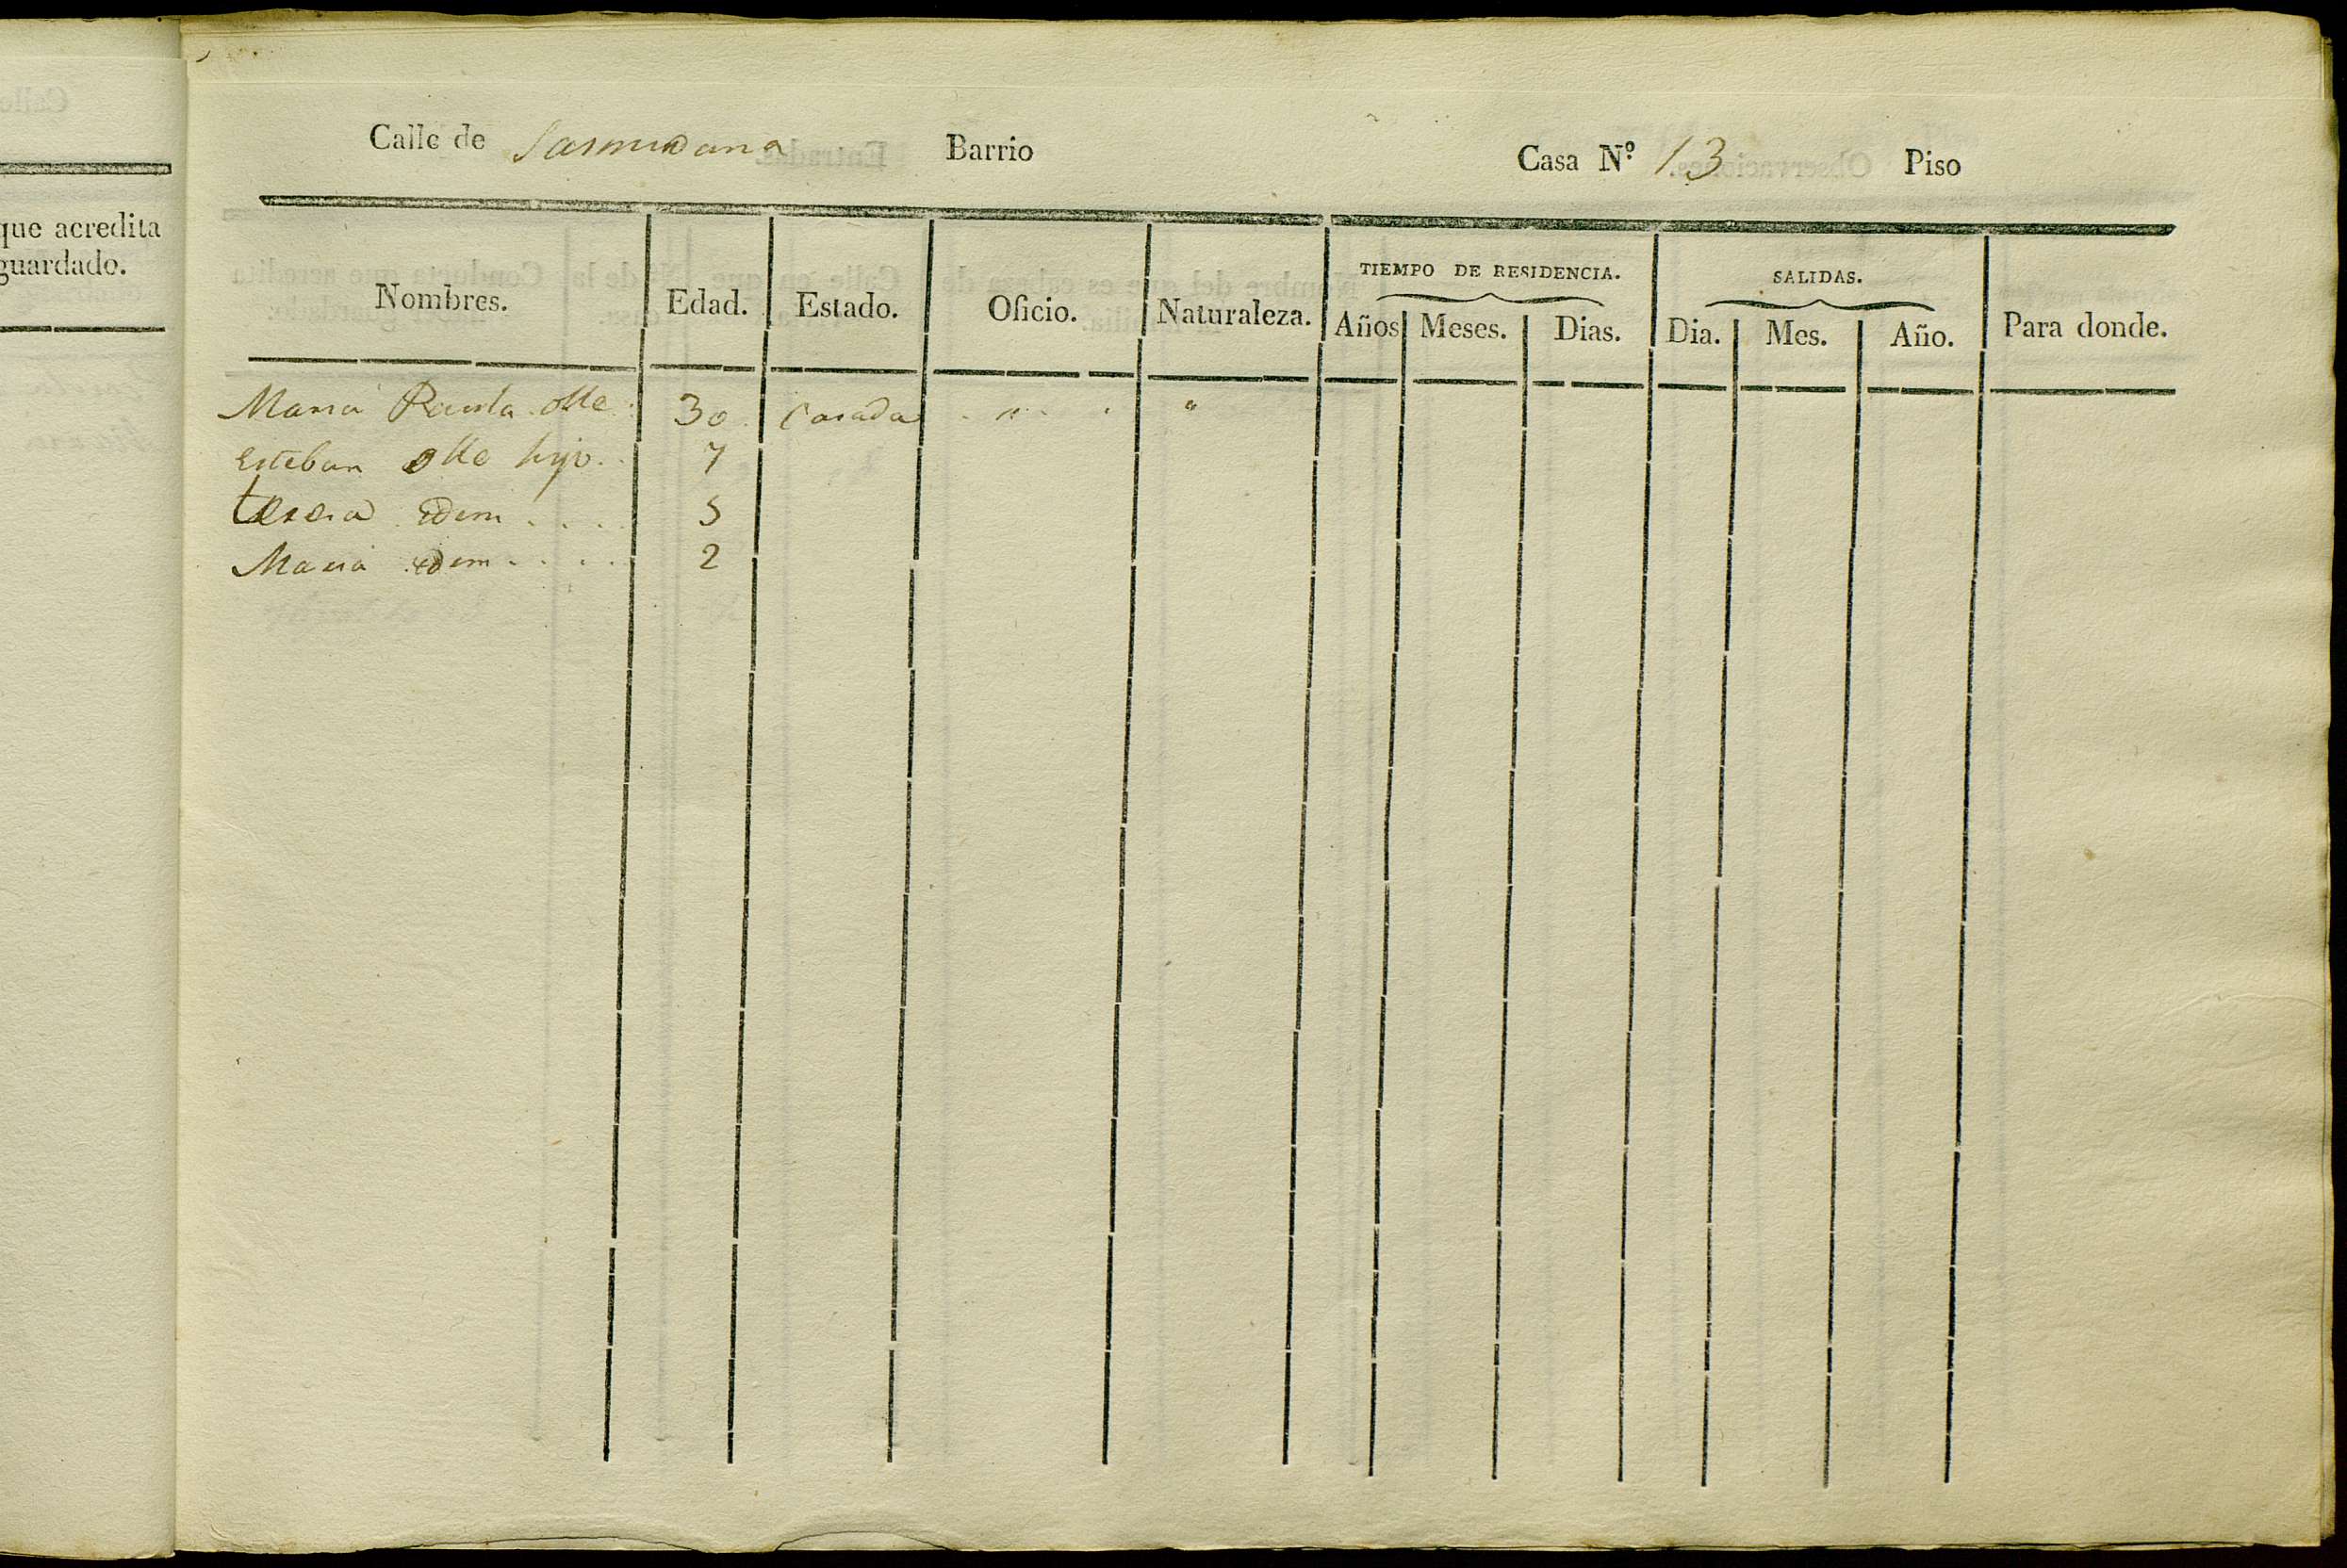 que acredita
guardado.
Calle de Barrio Casa Nº 13 Piso
Nombres. Edad. Estado. Oficio. Naturaleza. TIEMPO DE RESIDENCIA. SALIDAS. Para donde.
Años Meses. Dias. Dia. Mes. Año.
Maria Paula olle 30 Casada " "
Esteban olle hijo. 7
teresa idem 5
Maria idem 2